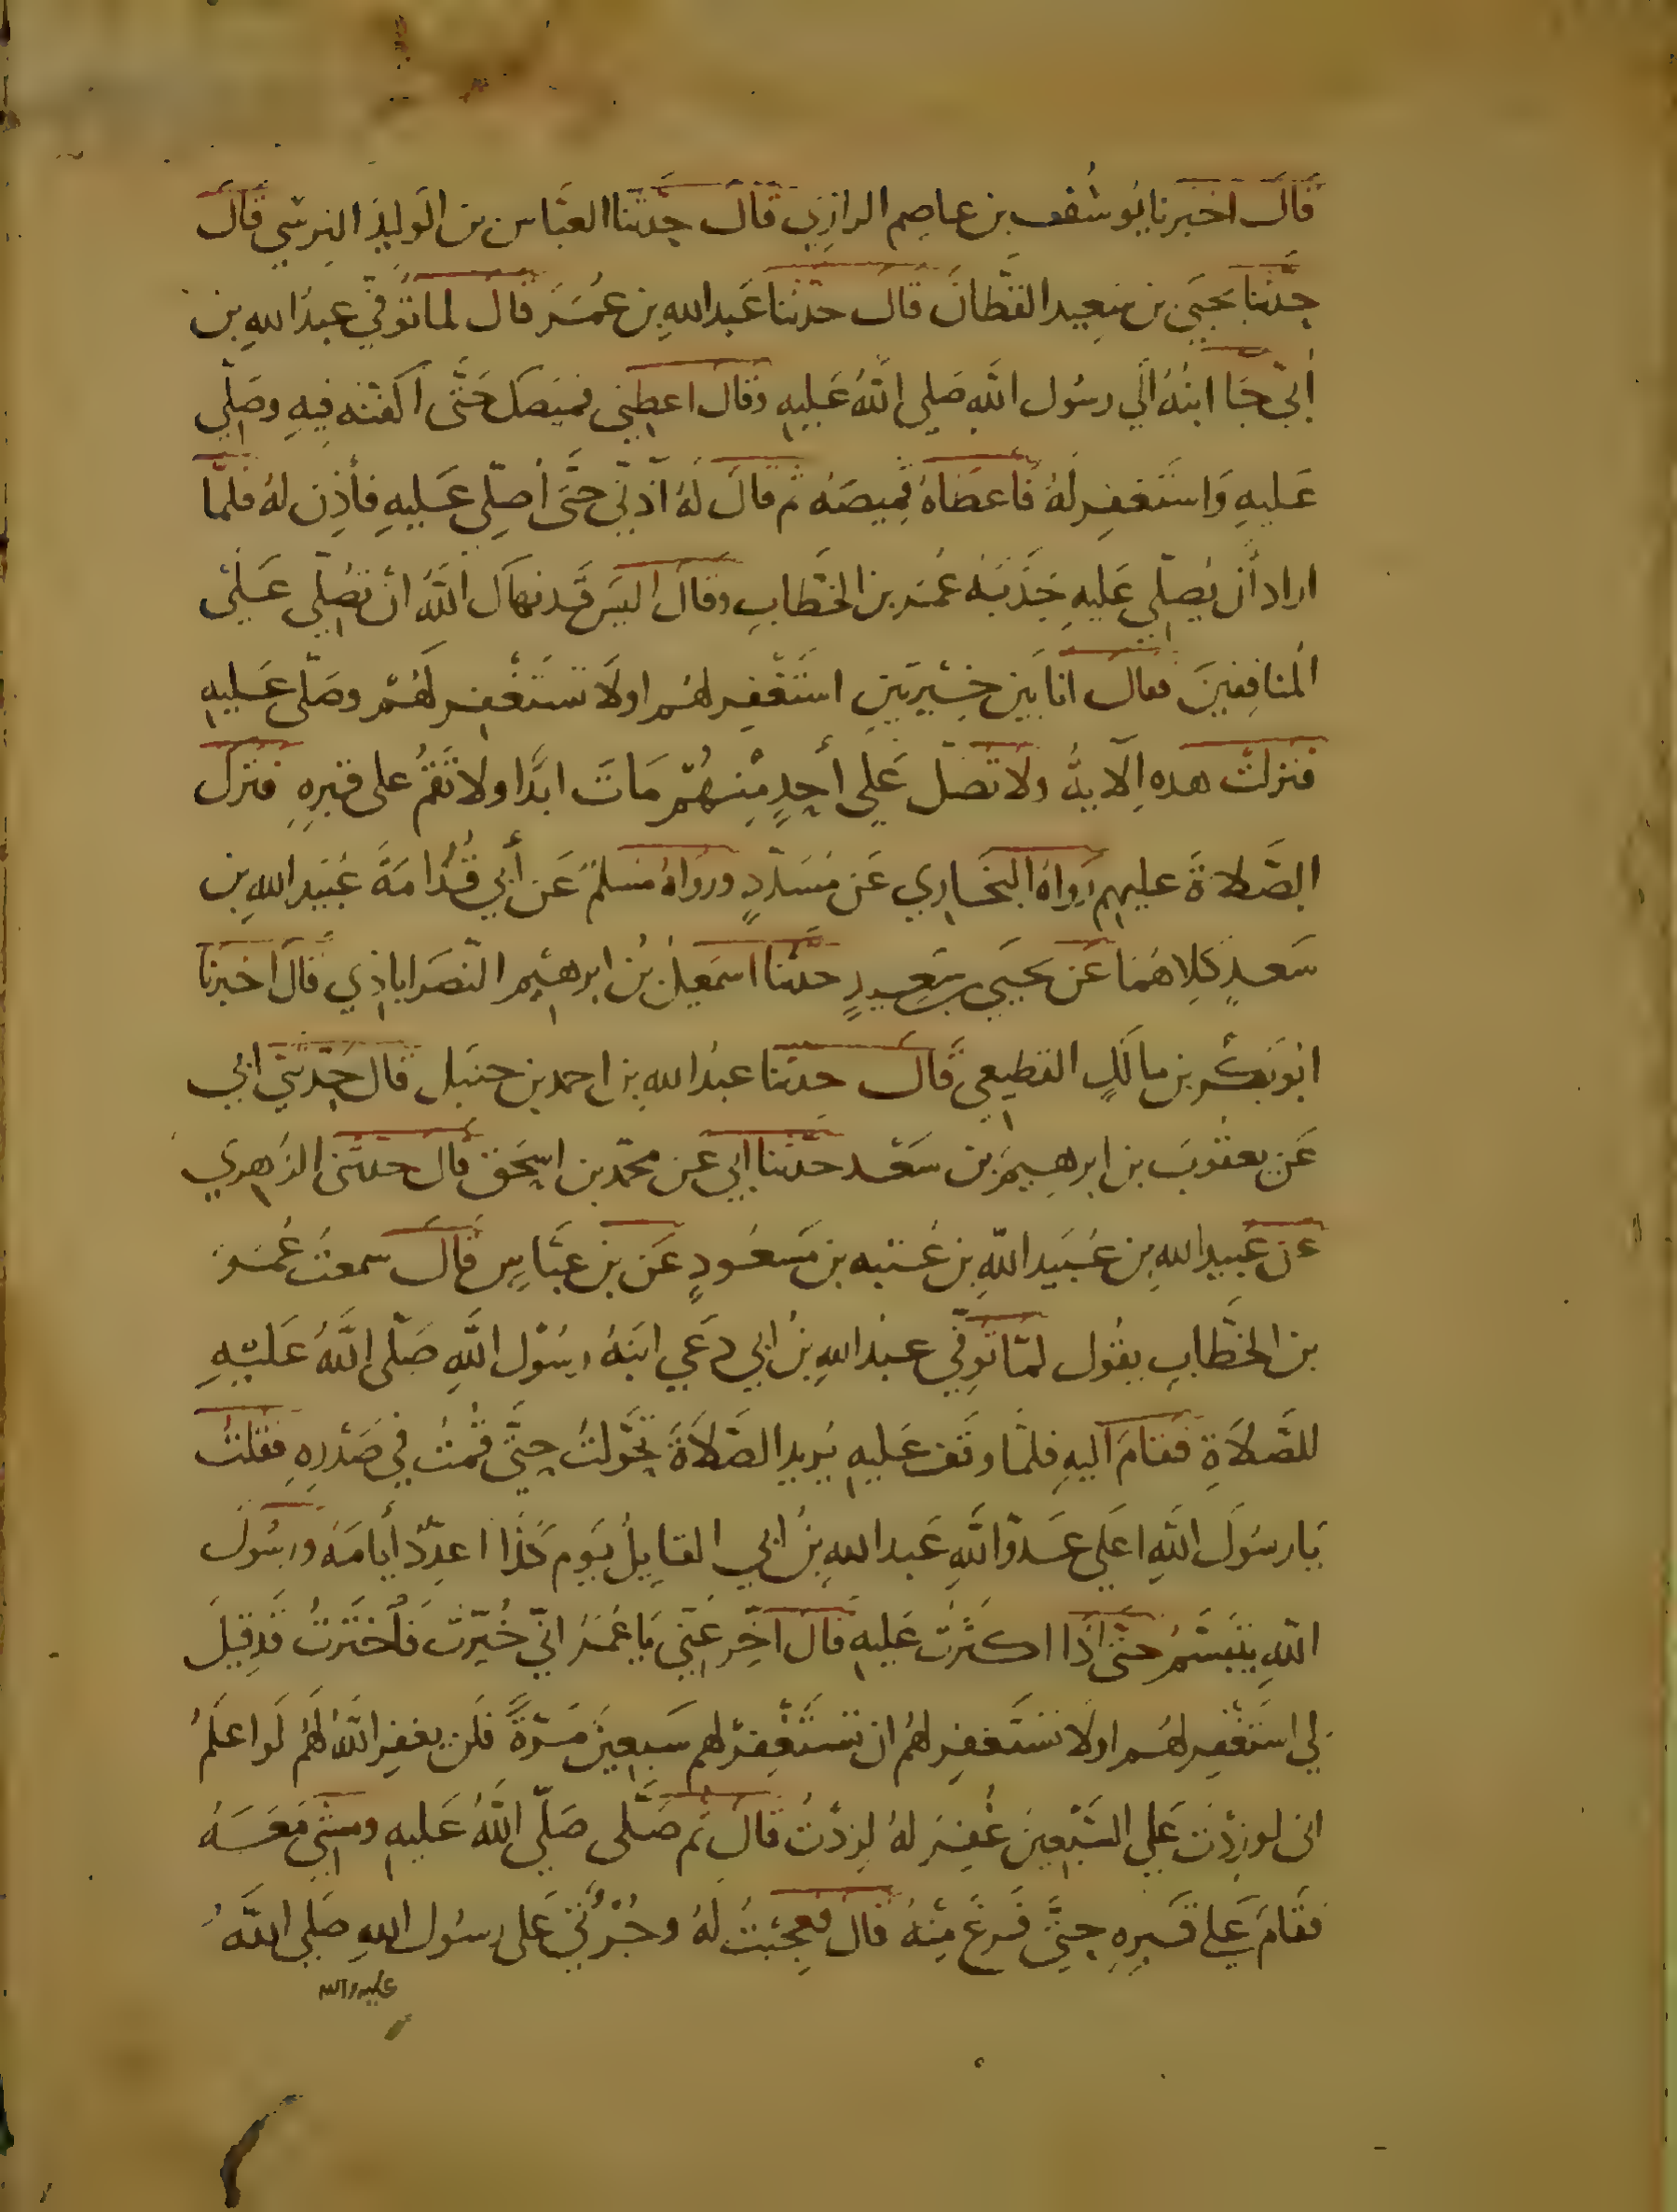 قَالَ اخبرنا يُوسُفُ بن عاصِم الرازِي قَالَ حَدَّثَنا العبَّاس بن الوَلِيدِ النرسي قَالَ
حدَّثنا يحيَى بن سَعِيد القَطَّان قَالَ حدثنا عَبدالله بن عُمَرَ قال لما تُوُفِّيَ عبدُ اللهِ بن
أُبَيّ جَا ابنُهُ الَي رسُول اللهِ صَلي اللهُ عَليهِ وَقَالَ اعطِنِي قميصَكَ حَتَّى اكفنه فِيهِ وصَلِّي
عَليهِ وَاستَغفِر لَهُ فَأعطَاهُ قمِيصَهُ ثم قالَ لَهُ آذنّي حَتَّى أُصلِّي عَليهِ فأذِن لهُ فلمَّا
اراد أن يُصلّي عَليهِ جَذَبَهُ عُمَر بن الخَطَّابِ وقالَ اليس قَد نهاكَ اللهُ انْ تُصَلِّي عَلَي
المنافِقِينَ فقالَ انا بَين خِيرَتَينِ استَغْفِر لهُم اولَا تستَغفِر لَهُم وصَلَّى عَليهِ
فنزلتْ هذه الآيةُ ولا تُصَلّ عَلي أحدٍ مِنهُم مَاتَ ابَدًا ولا تَقُمْ على قبرِهِ فتركَ
الصَّلاةَ عليهم رَواهُ البخَاري عَن مُسَدّدٍ ورَوَاهُ مُسلمٌ عَن أبي قُدَامَةَ عُبَيد اللهِ بن
سَعيدٍ كِلاهُمَا عَن يحيَي بن سَعِيدٍ حدثنا اسمَعِيلُ بنُ ابرهيم النّصَراباذِي قَالَ اخبرَنا
ابُو بَكْر بن مالَكٍ القطِيعِي قَالَ حدثنا عبدُ اللهِ بن احمد بن حنبل قَال حَدّثَنِي ابي
عَن يعقُوبَ بن ابرهِيمَ بن سَعْد حدّثنا ابي عَن محمّد بن اسحَق قال حدثني الزهرِي
عن عبيد اللهِ بن عُبَيد اللّهِ بن عُتبه بن مَسعُودٍ عَن بن عبَّاسٍ قَالَ سمعتُ عُمَرَ
بن الخطَّابِ يقُول لمّا تُوفِّي عبدُ اللهِ بنُ ابي دَعَي ابنَهُ رسُوْل اللّهِ صَلّى اللَّهُ عَليهِ
للصَّلاَةِ فَقامَ اليهِ فلمَّا وقَف عَليهِ يُريد الصَّلاَةَ تحَوَّلتُ حتَّى قُمتُ فِي صَدرِهِ فقلتُ
يَا رسُولَ اللّهِ اعَلي عَدوّ اللّهِ عَبد اللهِ بنُ ابي القايِلُ يَوم كَذَا اعدِّدُ أيامَهُ وَرسُولَ
اللّهِ يتَبَسَّمُ حتّى اذَا اكثرتُ عَليهِ قَالَ اخِّر عَنّي يَا عُمَرُ انّي خُيّرتُ فَاختَرتُ قَد قِيلَ
لي استَغْفِر لهُم اولَا تستَغفِر لهُم ان تستَغْفِرْ لهم سَبعِينَ مَرّةً فَلن يغفِرَ اللّهُ لَهُم لَو اعلَمُ
انى لو زدْت عَلي السَّبعِينَ غُفِرَ لهُ لزدْتُ قَال ثم صَلَّى صَلّي اللّهُ عَليهِ ومشِي مَعَهُ
فقَامَ عَلي قَبرِهِ حتَّى فَرغَ مِنهُ قَال فعجبتُ لهُ وجُرْئَتِي عَلى رسُول اللهِ صَلي اللهُ
عليه واله